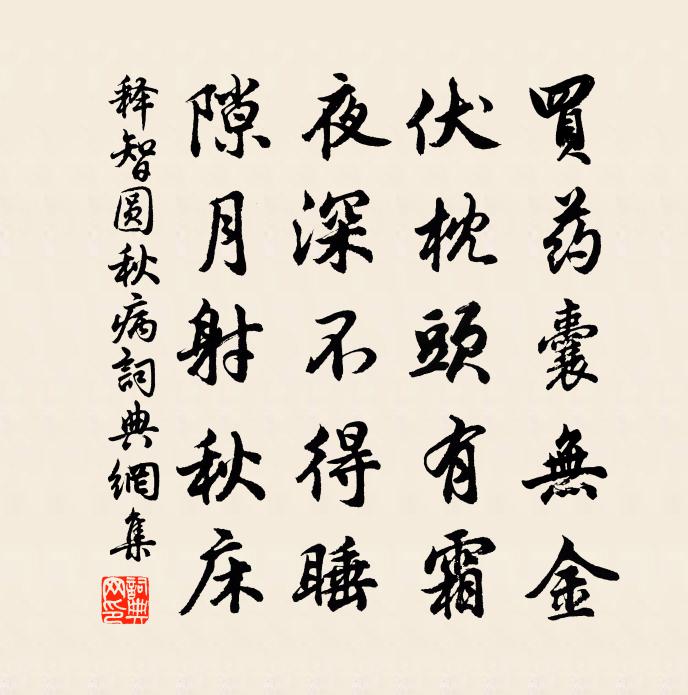 買药囊無金
伏枕頭有霜
夜深不得睡
隙月射秋床
释智圆秋病詞典網集
詞典网印